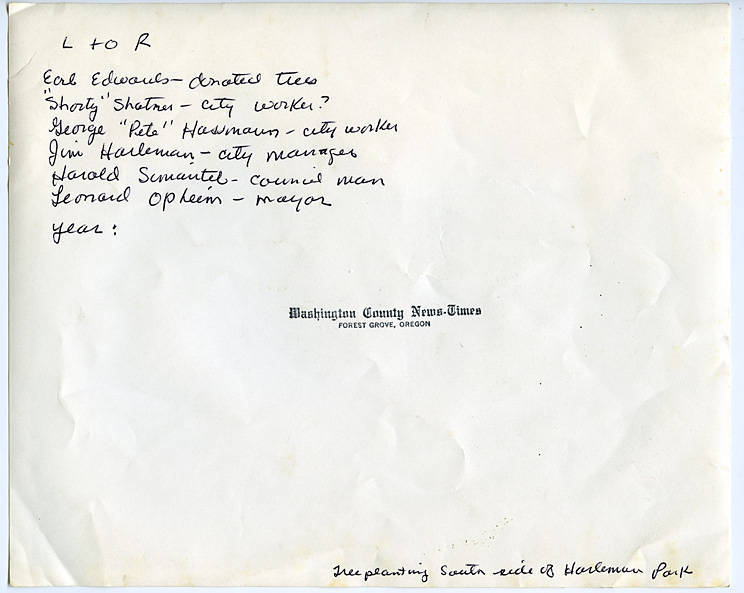 L to R
Earl Edwards - donated trees
"Shorty" Shatner - city worker?
George "Pete" Hassmann - city worker
Jim Harleman - city manager
Harold Simantel - council man
Leonard Opheim - mayor
year:
Washington County News-Times
FOREST GROVE, OREGON
Tree planting South side of Harleman Park